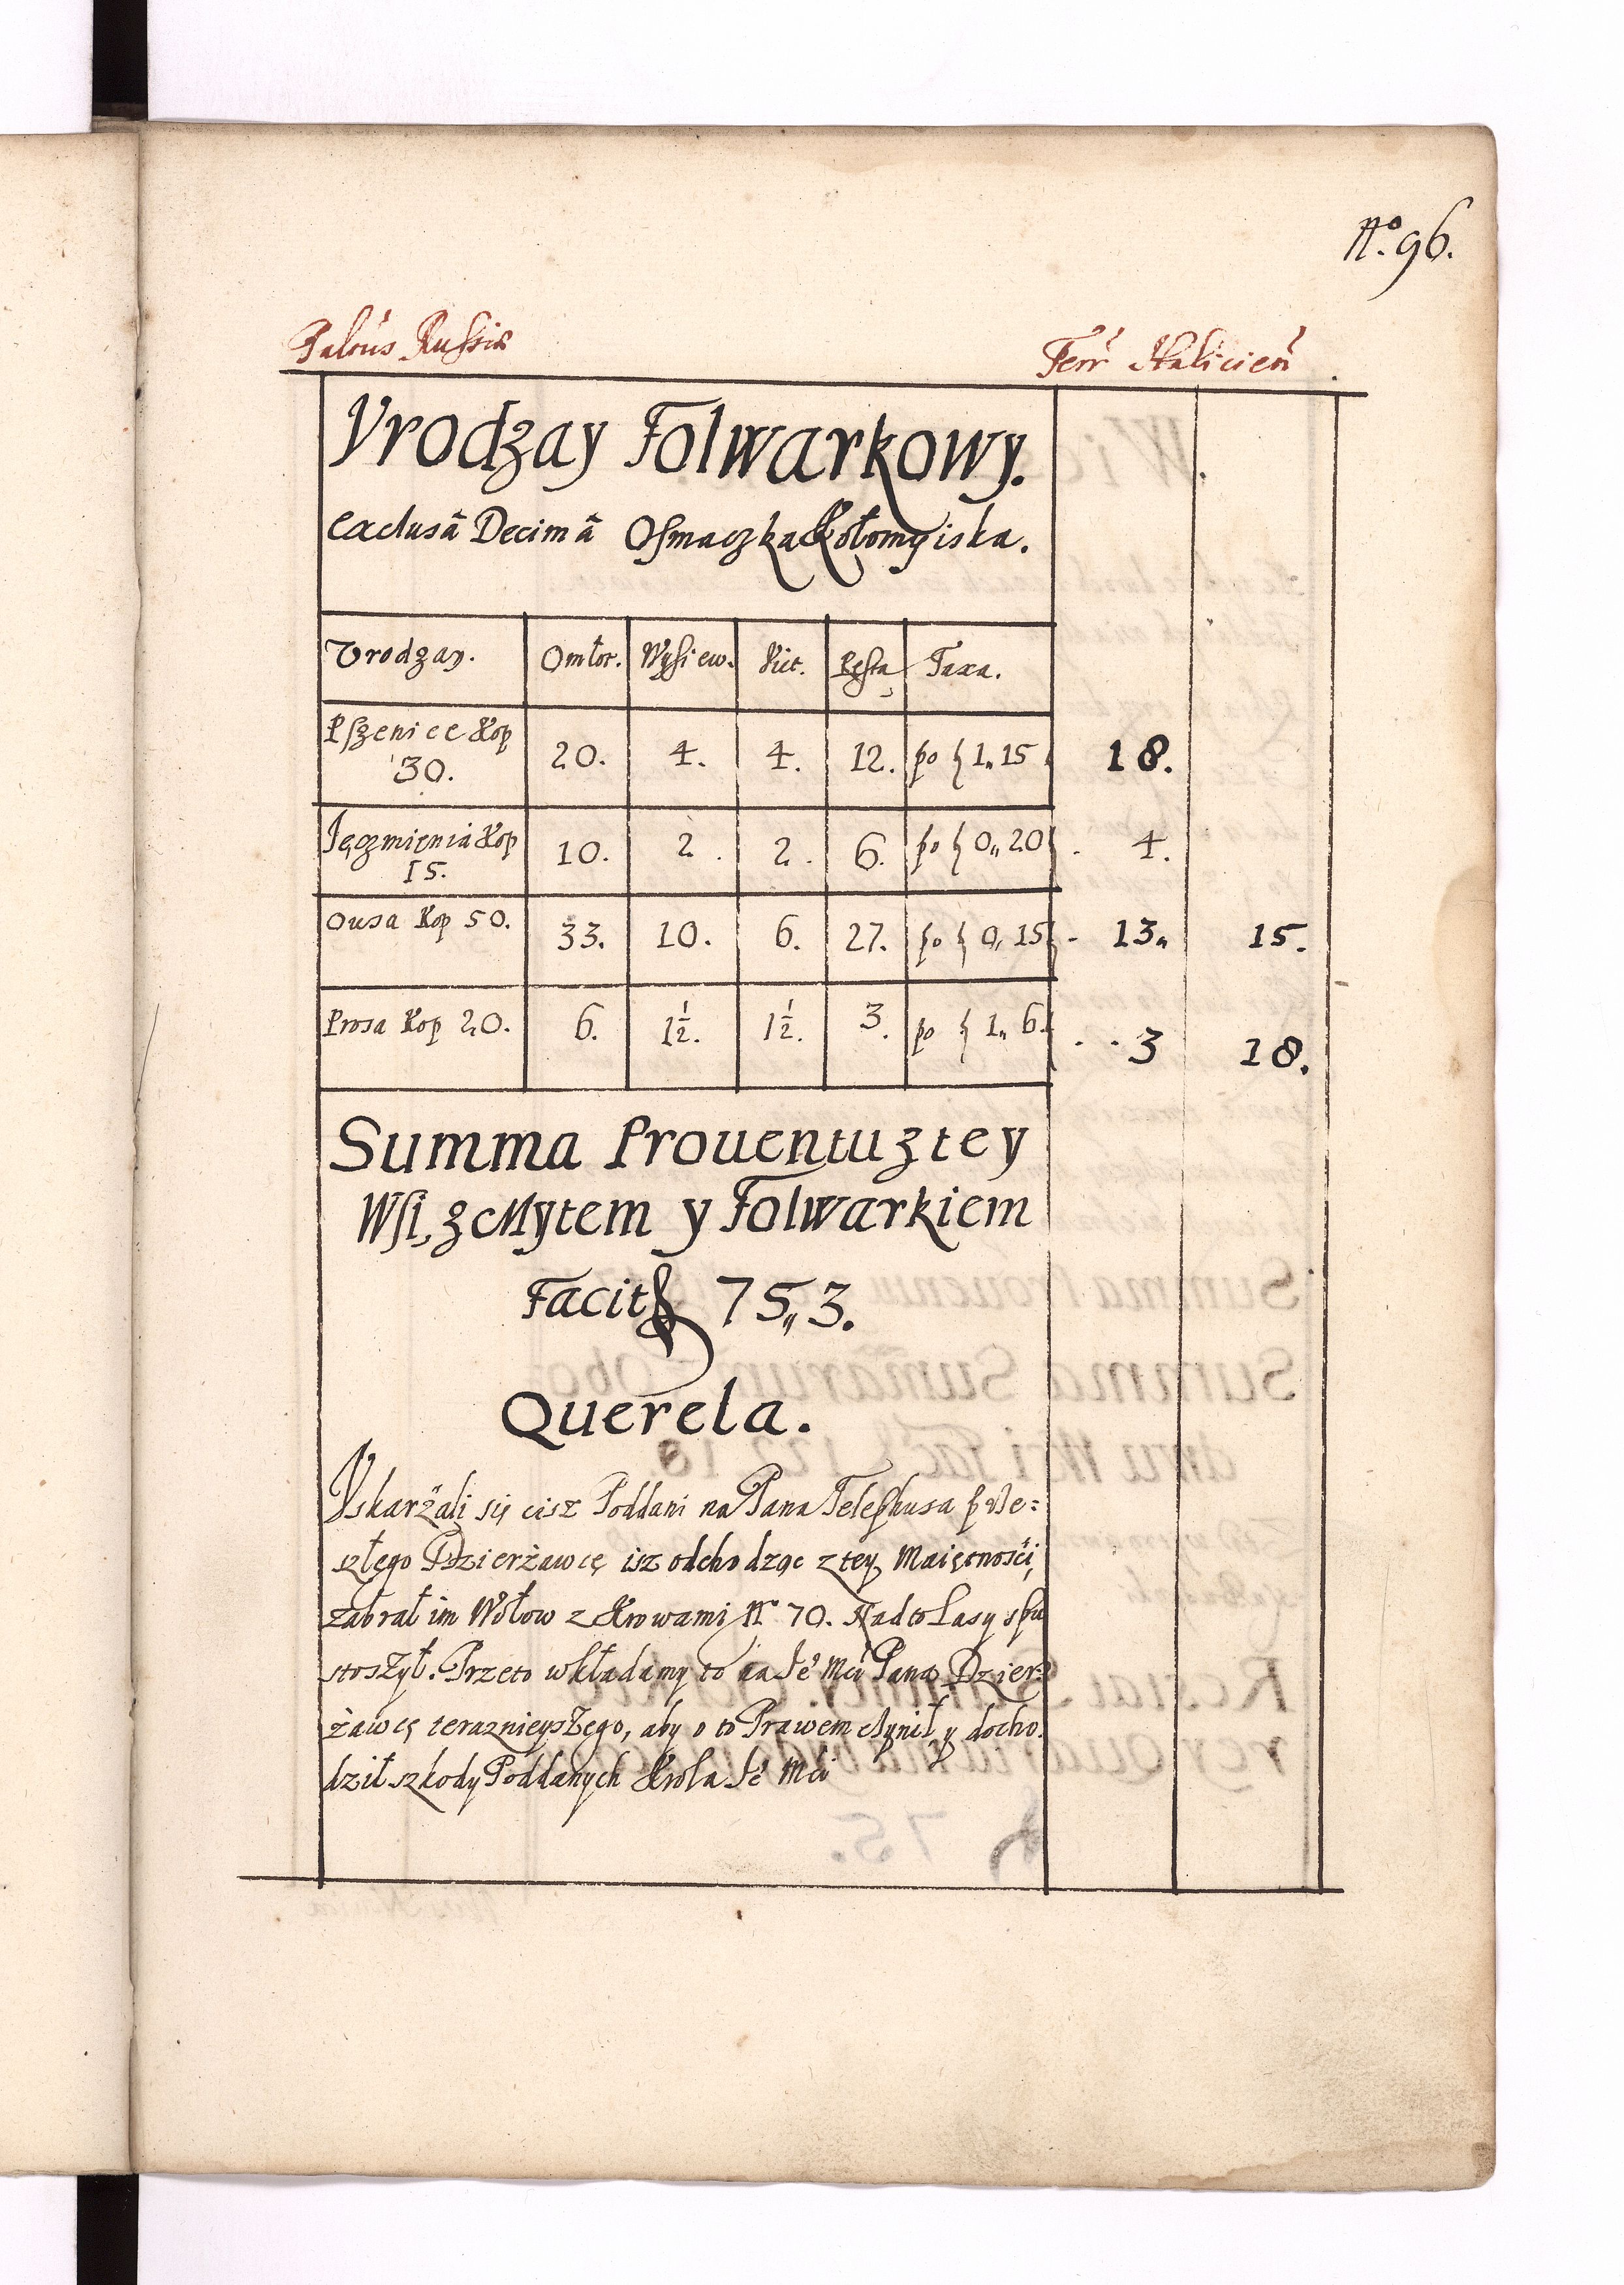 No. 96.
Palnus Russiæ Terr Halicien
Vrodzay Folwarkowy.
Exclusa Decima Osmaczka Kołomyiska.
Vrodzay. Omłot. Wysiew. Vict. Resta Taxa.
Pszenice Kop 30. 20. 4. 4. 12. po ƒ 1„ 15 18.
Jęczmięnia Kop 15. 10. 2. 2. 6. po ƒ 0„ 20 4.
Ousa Kop 50. 33. 10. 6. 27. po ƒ 0„ 15 13„ 15.
Prosa Kop 20. 6. 1½. 1½. 3. po ƒ 1„ 6. 3 18.
Summa Prouentu z tey
Wsi, z Mytem y Folwarkiem
Facit ƒ 75„ 3.
Querela.
Vskarżali się cisz Poddani na Pana Telephusa prze=
szłego Dzierżawcę isz odchodząc z tey Maiętności,
zabrał im Wołow z Krowami No 70. Nad to Lasy spu
stoszył. Przeto wkładamy to na Je Mci Pana Dzier=
żawcę teraznieyszego, aby o to Prawem czynił, y docho=
dził szkody Poddanych Krola Je Mci